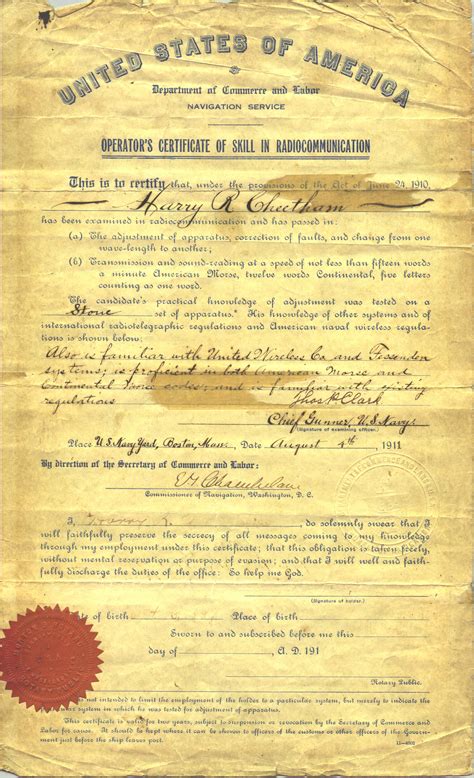 UNITED STATES OF AMERICA
Department of Commerce and Labor
NAVIGATION SERVICE
OPERATOR'S CERTIFICATE OF SKILL IN RADIOCOMMUNICATION
This is to certify that, under the provisions of the Act of June 24, 1910,
Harry R. Cheetham
has been examined in radiocommunication and has passed in:
(a) The adjustment of apparatus, correction of faults, and change from one
wave-length to another;
(b) Transmission and sound-reading at a speed of not less than fifteen words
a minute American Morse, twelve words Continental, five letters
counting as one word.
The candidate's practical knowledge of adjustment was tested on a
Stone set of apparatus. His knowledge of other systems and of
international radiotelegraphic regulations and American naval wireless regula-
tions is shown below:
Also is familiar with United Wireless Co and Fessenden
systems; is proficient in both American Morse and
Continental Morse codes; and is familiar with existing
regulations
Thos P. Clark
Chief Gunner, U.S. Navy
(Signature of examining officer.)
Place U.S. Navy Yard, Boston, Mass, Date August 4th, 1911
By direction of the Secretary of Commerce and Labor:
Commissioner of Navigation, Washington, D. C.
I, Harry R. do solemnly swear that I
will faithfully preserve the secrecy of all messages coming to my knowledge
through my employment under this certificate; that this obligation is taken freely,
without mental reservation or purpose of evasion; and that I will well and faith-
fully discharge the duties of the office: So help me God.
(Signature of holder.)
of birth Place of birth
Sworn to and subscribed before me this
day of , A. D. 191
Notary Public.
is not intended to limit the employment of the holder to a particular system, but merely to indicate the
system in which he was tested for adjustment of apparatus.
This certificate is valid for two years, subject to suspension or revocation by the Secretary of Commerce and
Labor for cause. It should be kept where it can be shown to officers of the customs or other officers of the Govern-
ment just before the ship leaves port.